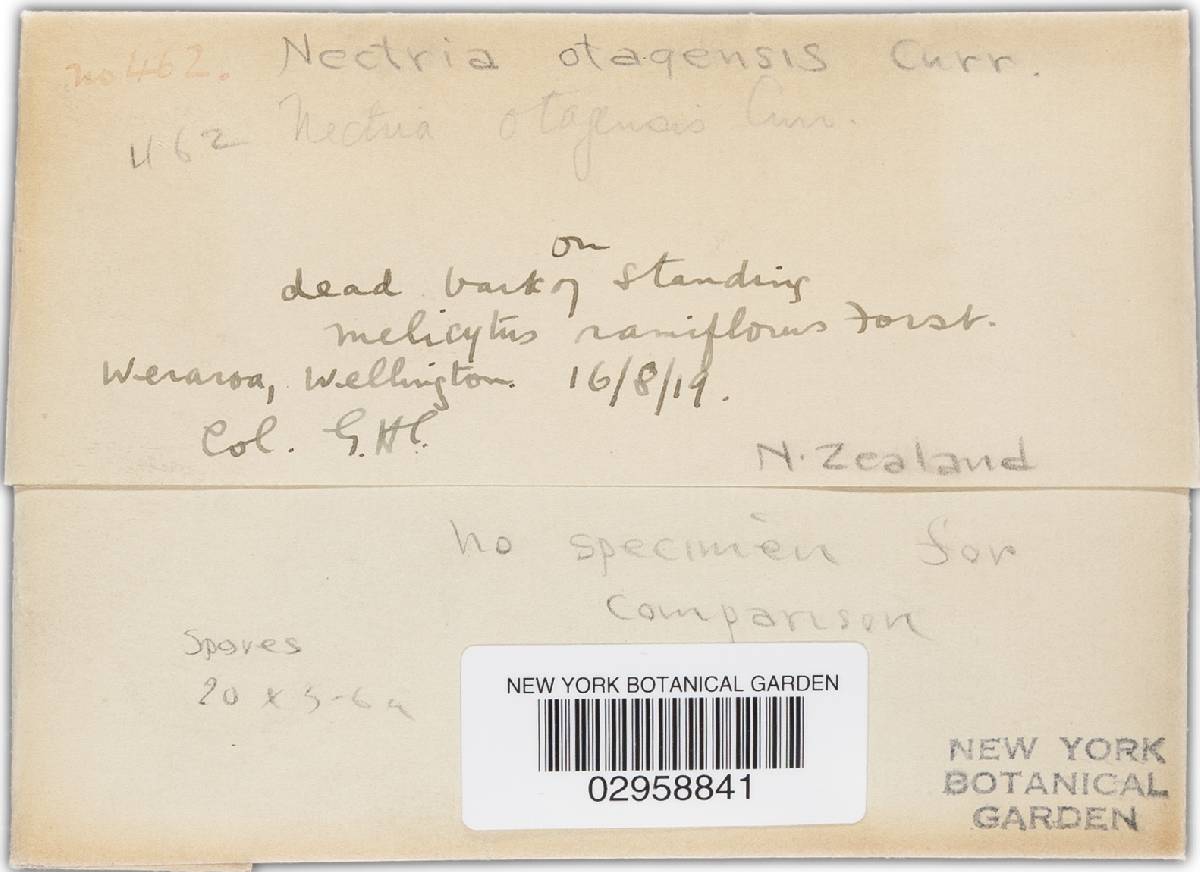 no 462. Nectria otagensis Curr.
462 Nectria otagensis Curr.
on
dead bark of standing
melicytus ramiflorus Forst.
Weraroa, Wellington. 16/8/19.
Col. G.H.C.
N. Zealand
no specimen for
comparison
Spores
20 x 5-6 u
NEW YORK BOTANICAL GARDEN
02958841
NEW YORK
BOTANICAL
GARDEN